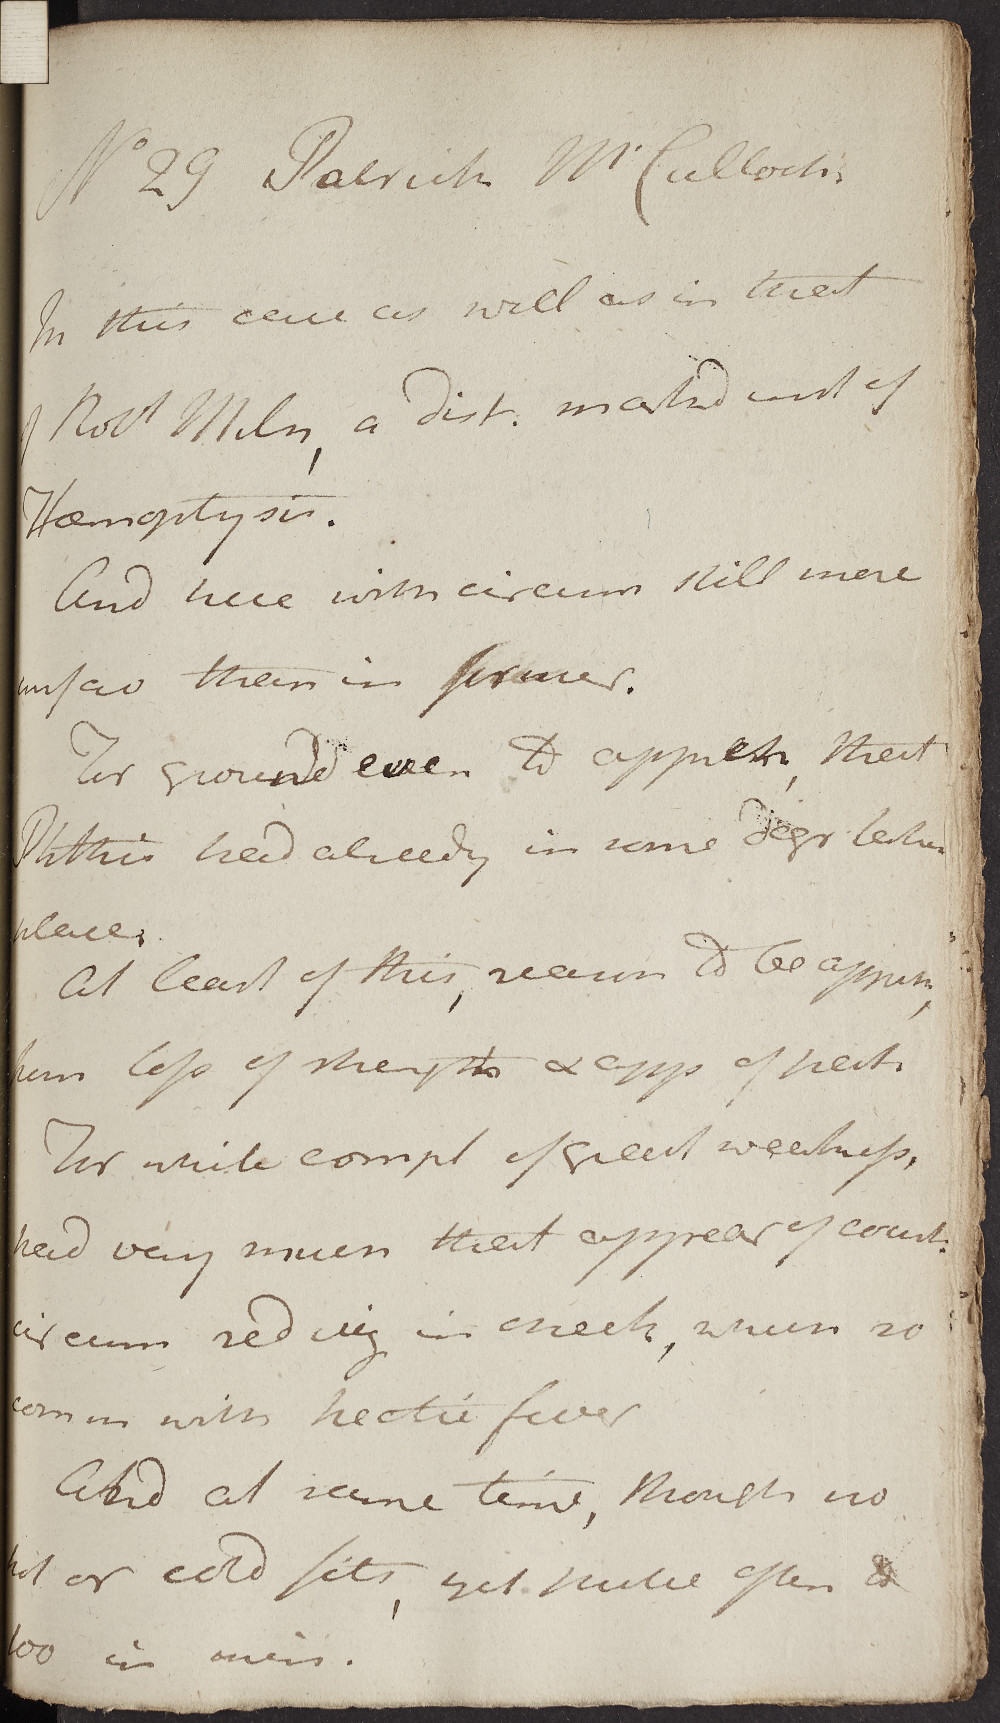 No 29 Patrick McCulloch.
In this case as well as in that
of Robt Miln, a dist. markd inst of
Hæmoptysis.
And here with circum still more
unfav than in former.
For ground even to appreh, that
Phthis had already in some degr taken
place.
At least of this, reason to be appreh,
from loss of strength & app of pat.
For while compl of great weakness,
had very much that appear of count.
circum red in cheek, when so
comm with hectic fever
And at same time, though no
hot or cold fits, yet pulse often to
100 in min.